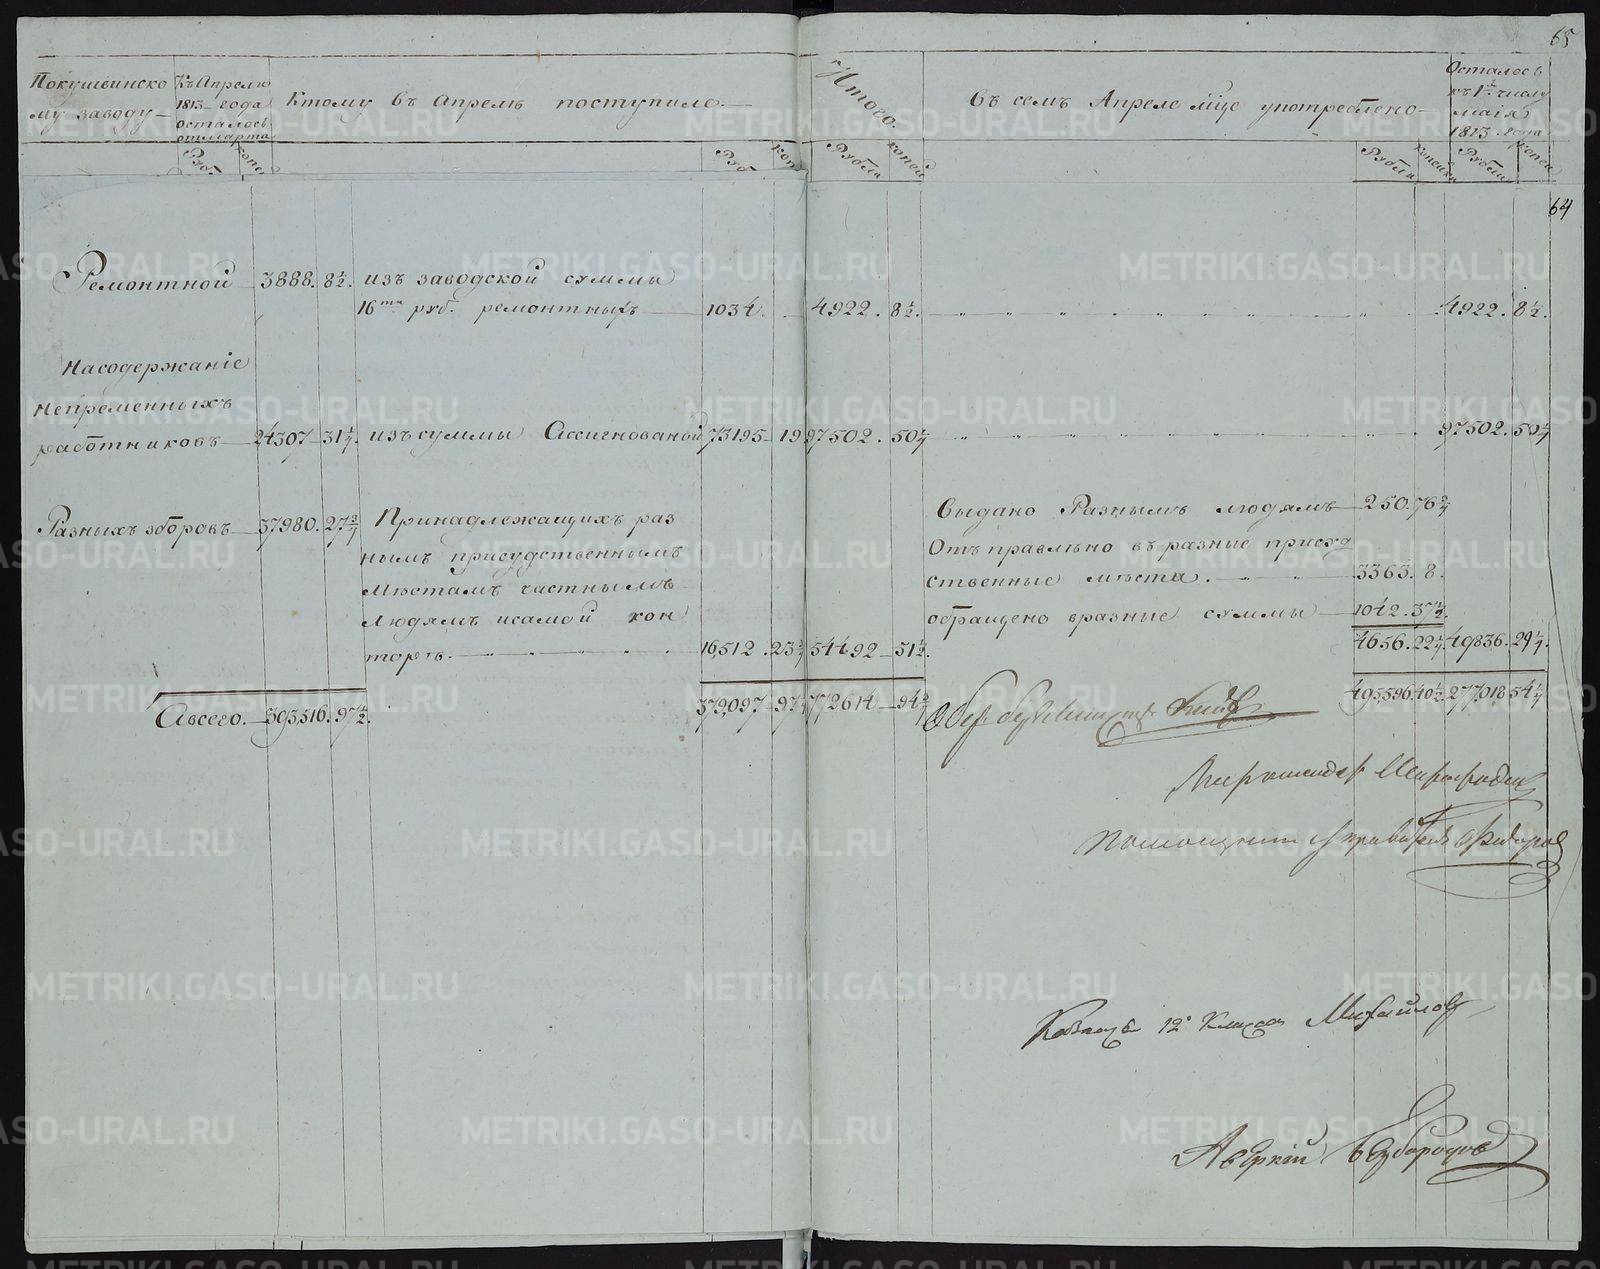 65
Покушвинско
му заводу
Къ Апрелю
1813 года
осталось
отмарта
Ктому въ апреле поступило.
Итого.
Въ семъ Апреле мце употреблено
Осталось
къ 1у числу
маія
1813 года
Руб. копе. Руб коп Рубли копей Рубли копейки Рубли копей
64
Ремонтной 3888. 8½. изъ заводской суммы
16ти руб. ремонтныхъ 1034. 4922. 8½. 4922. 8½.
Насодержаніе
непременныхъ
работниковъ 24307 31¼. изъ суммы Ассигнованой 73195 19 97502. 50¼ 97502. 50¼
Разныхъ зборовъ 37980. 27¾ Принадлежащихъ раз
нымъ присудственнымъ
местамъ частнымъ
людямъ исамой кон
торе. 16,512. 23¾ 54492 51½.
Выдано Разнымъ людямъ 250. 76¾
Отъправлено въ разные присуд
ственные места. 3363. 8.
обращено вразные суммы 1042. 37½.
4656. 22¼. 49836. 29¼.
Авсего. 393,516. 97½. 379,097 97¼ 772614 94¾ 495,596 40½ 277,018 54¼
Помощникъ Управителя Федоровъ
Казначей 12 Класса Михайловъ
Аверкій Безбородовъ
METRIKI.GASO-URAL.RU